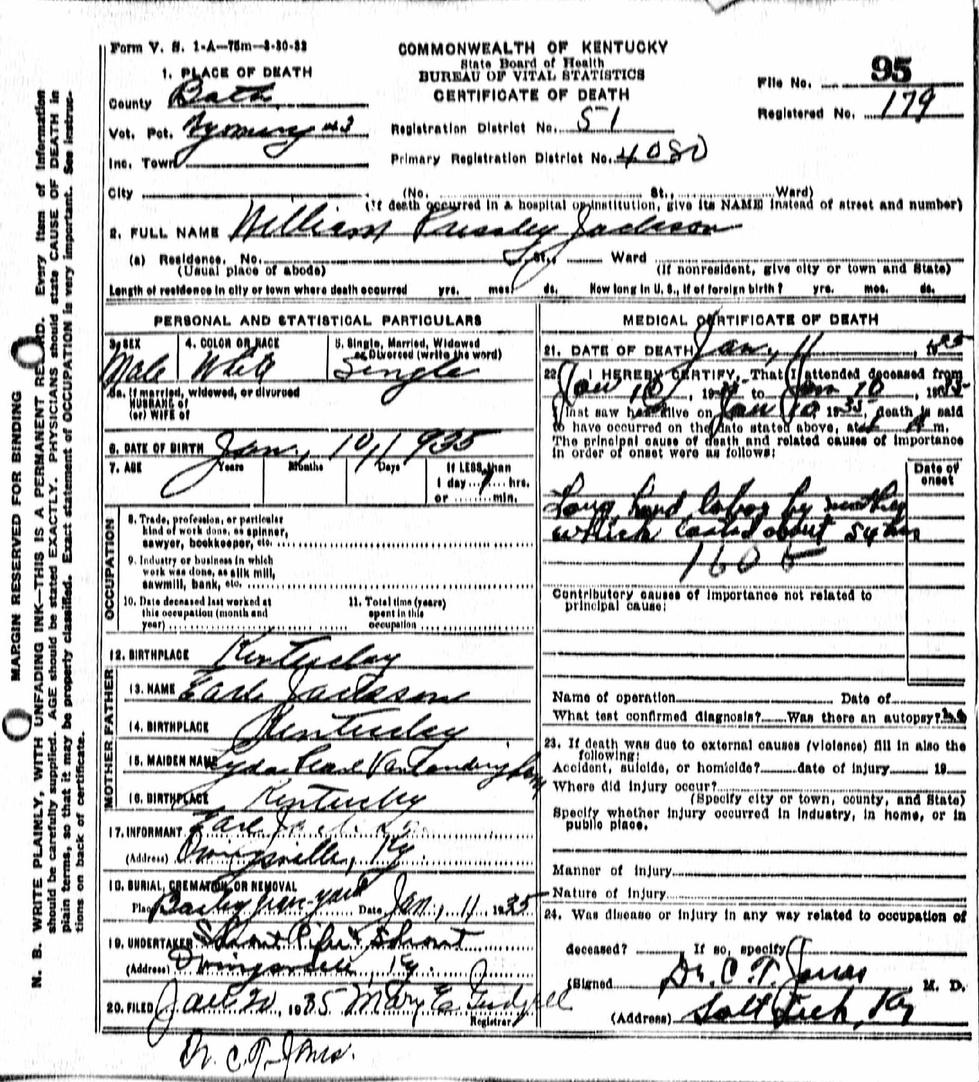 Form V. S. 1-A—75m—3-30-33
COMMONWEALTH OF KENTUCKY
State Board of Health
BUREAU OF VITAL STATISTICS
CERTIFICATE OF DEATH
File No. 95
Registered No. 179
1. PLACE OF DEATH
County Bath
Vot. Pct. #3
Inc. Town
Registration District No. 51
Primary Registration District No. 4080
City (No. St., Ward)
(If death occurred in a hospital or institution, give its NAME instead of street and number)
2. FULL NAME William Pressley Jackson
(a) Residence. No. St., Ward
(Usual place of abode) (If nonresident, give city or town and State)
Length of residence in city or town where death occurred yrs. mos. ds. How long in U. S., if of foreign birth? yrs. mos. ds.
PERSONAL AND STATISTICAL PARTICULARS
3. SEX Male
4. COLOR OR RACE White
5. Single, Married, Widowed
or Divorced (write the word)
Single
5a. If married, widowed, or divorced
HUSBAND of
(or) WIFE of
6. DATE OF BIRTH Jan, 10, 1935
7. AGE Years Months Days If LESS than
1 day, hrs.
or min.
OCCUPATION
8. Trade, profession, or particular
kind of work done, as spinner,
sawyer, bookkeeper, etc.
9. Industry or business in which
work was done, as silk mill,
sawmill, bank, etc.
10. Date deceased last worked at
this occupation (month and
year)
11. Total time (years)
spent in this
occupation
12. BIRTHPLACE Kentucky
FATHER
13. NAME Earl Jackson
14. BIRTHPLACE Kentucky
MOTHER
15. MAIDEN NAME Lyda Pearl Vanlandingham
16. BIRTHPLACE Kentucky
17. INFORMANT Earl
(Address) Owingsville, Ky.
18. BURIAL, CREMATION, OR REMOVAL
Place grave yard Date Jan, 11 1935
19. UNDERTAKER
(Address) Owingsville, Ky.
20. FILED Jan 20, 1935 Mary E. Gudgell
Registrar
Dr. C. T. Jones.
MEDICAL CERTIFICATE OF DEATH
21. DATE OF DEATH Jan, 11, 1935
22. I HEREBY CERTIFY, That I attended deceased from
Jan 10, 1935 to Jan 10, 1935
I last saw h alive on Jan 10 1935, death is said
to have occurred on the date stated above, at m.
The principal cause of death and related causes of importance
in order of onset were as follows:
Date of
onset
Long hard labor by mother
which lasted about 54 hrs
160
Contributory causes of importance not related to
principal cause:
Name of operation Date of
What test confirmed diagnosis? Was there an autopsy? no
23. If death was due to external causes (violence) fill in also the
following:
Accident, suicide, or homicide? date of injury 19
Where did injury occur?
(Specify city or town, county, and State)
Specify whether injury occurred in industry, in home, or in
public place.
Manner of injury
Nature of injury
24. Was disease or injury in any way related to occupation of
deceased? If so, specify
(Signed Dr. C. T. Jones M. D.
(Address) Salt Lick, Ky
MARGIN RESERVED FOR BINDING
N. B. WRITE PLAINLY, WITH UNFADING INK—THIS IS A PERMANENT RECORD. Every item of information
should be carefully supplied. AGE should be stated EXACTLY. PHYSICIANS should state CAUSE OF DEATH in
plain terms, so that it may be properly classified. Exact statement of OCCUPATION is very important. See instruc-
tions on back of certificate.